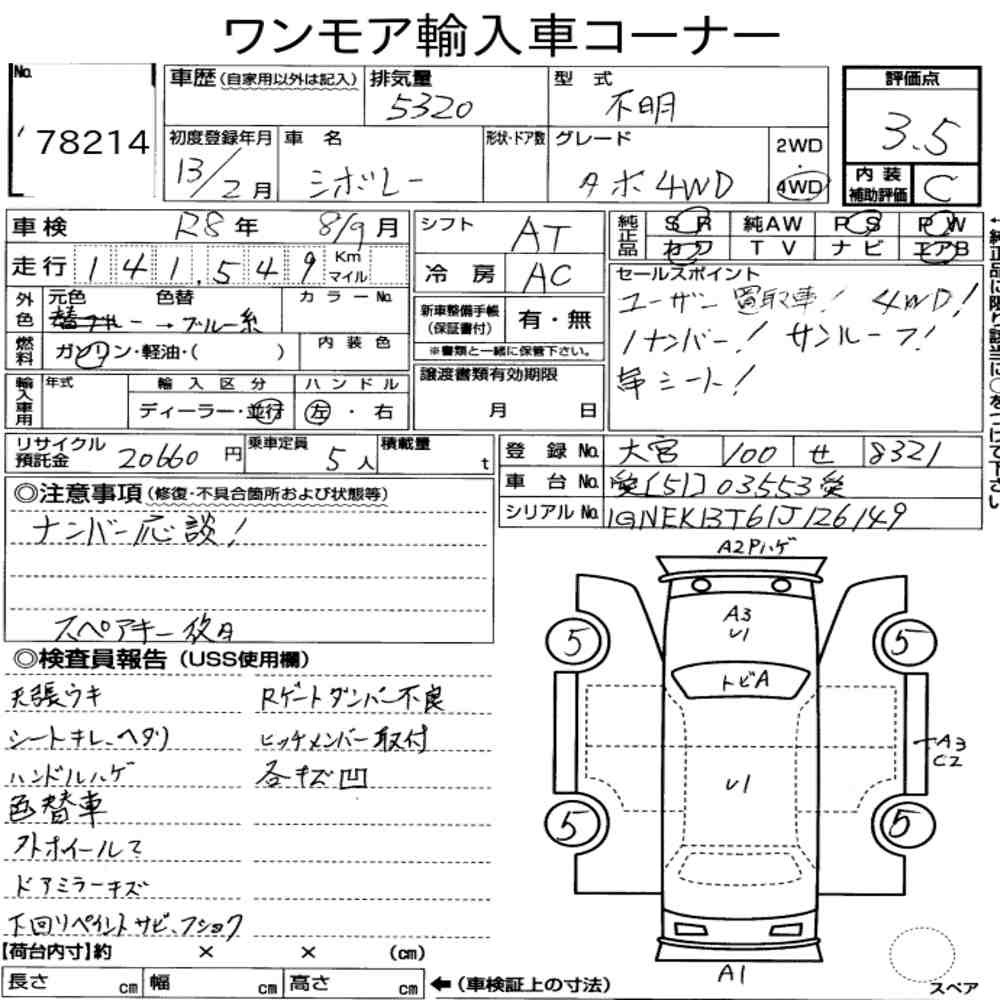 ワンモア輸入車コーナー
No. 78214
車歴(自家用以外は記入) 排気量 5320 型式 不明
評価点 3.5
初度登録年月 13/2月 車名 シボレー 形状・ドア数 グレード タホ4WD 2WD・4WD
内装補助評価 C
車検 R8年 8/9月 シフト AT
純正品 SR 純AW PS PW
カワ TV ナビ エアB
走行 141,549 Km マイル 冷房 AC
外色 元色 色替 カラーNo.
ブルー→ブルー系
新車整備手帳(保証書付) 有・無
※書類と一緒に保管下さい。
燃料 ガソリン・軽油・( ) 内装色
セールスポイント
ユーザー買取車! 4WD!
1ナンバー! サンルーフ!
革シート!
←純正品に限り該当に○をつけて下さい
輸入車用 年式 輸入区分 ハンドル
ディーラー・並行 左・右
譲渡書類有効期限
月 日
リサイクル預託金 20660円 乗車定員 5人 積載量 t
登録No. 大宮 100 せ 8321
車台No. [51]03553
シリアルNo. 1GNEK13T61J126149
◎注意事項(修復・不具合箇所および状態等)
ナンバー応談!
スペアキー後日
◎検査員報告(USS使用欄)
天張ウキ Rゲートダンパー不良
シートキレ、ヘタリ ヒッチメンバー取付
ハンドルハゲ 各キズ凹
色替車
外ホイールて
ドアミラーキズ
下回リペイントサビ、フショク
【荷台内寸】約 × × (cm)
長さ cm 幅 cm 高さ cm ←(車検証上の寸法)
A2Pハゲ
A3
U1
5 5
トビA
A3
C2
U1
5 5
A1
スペア